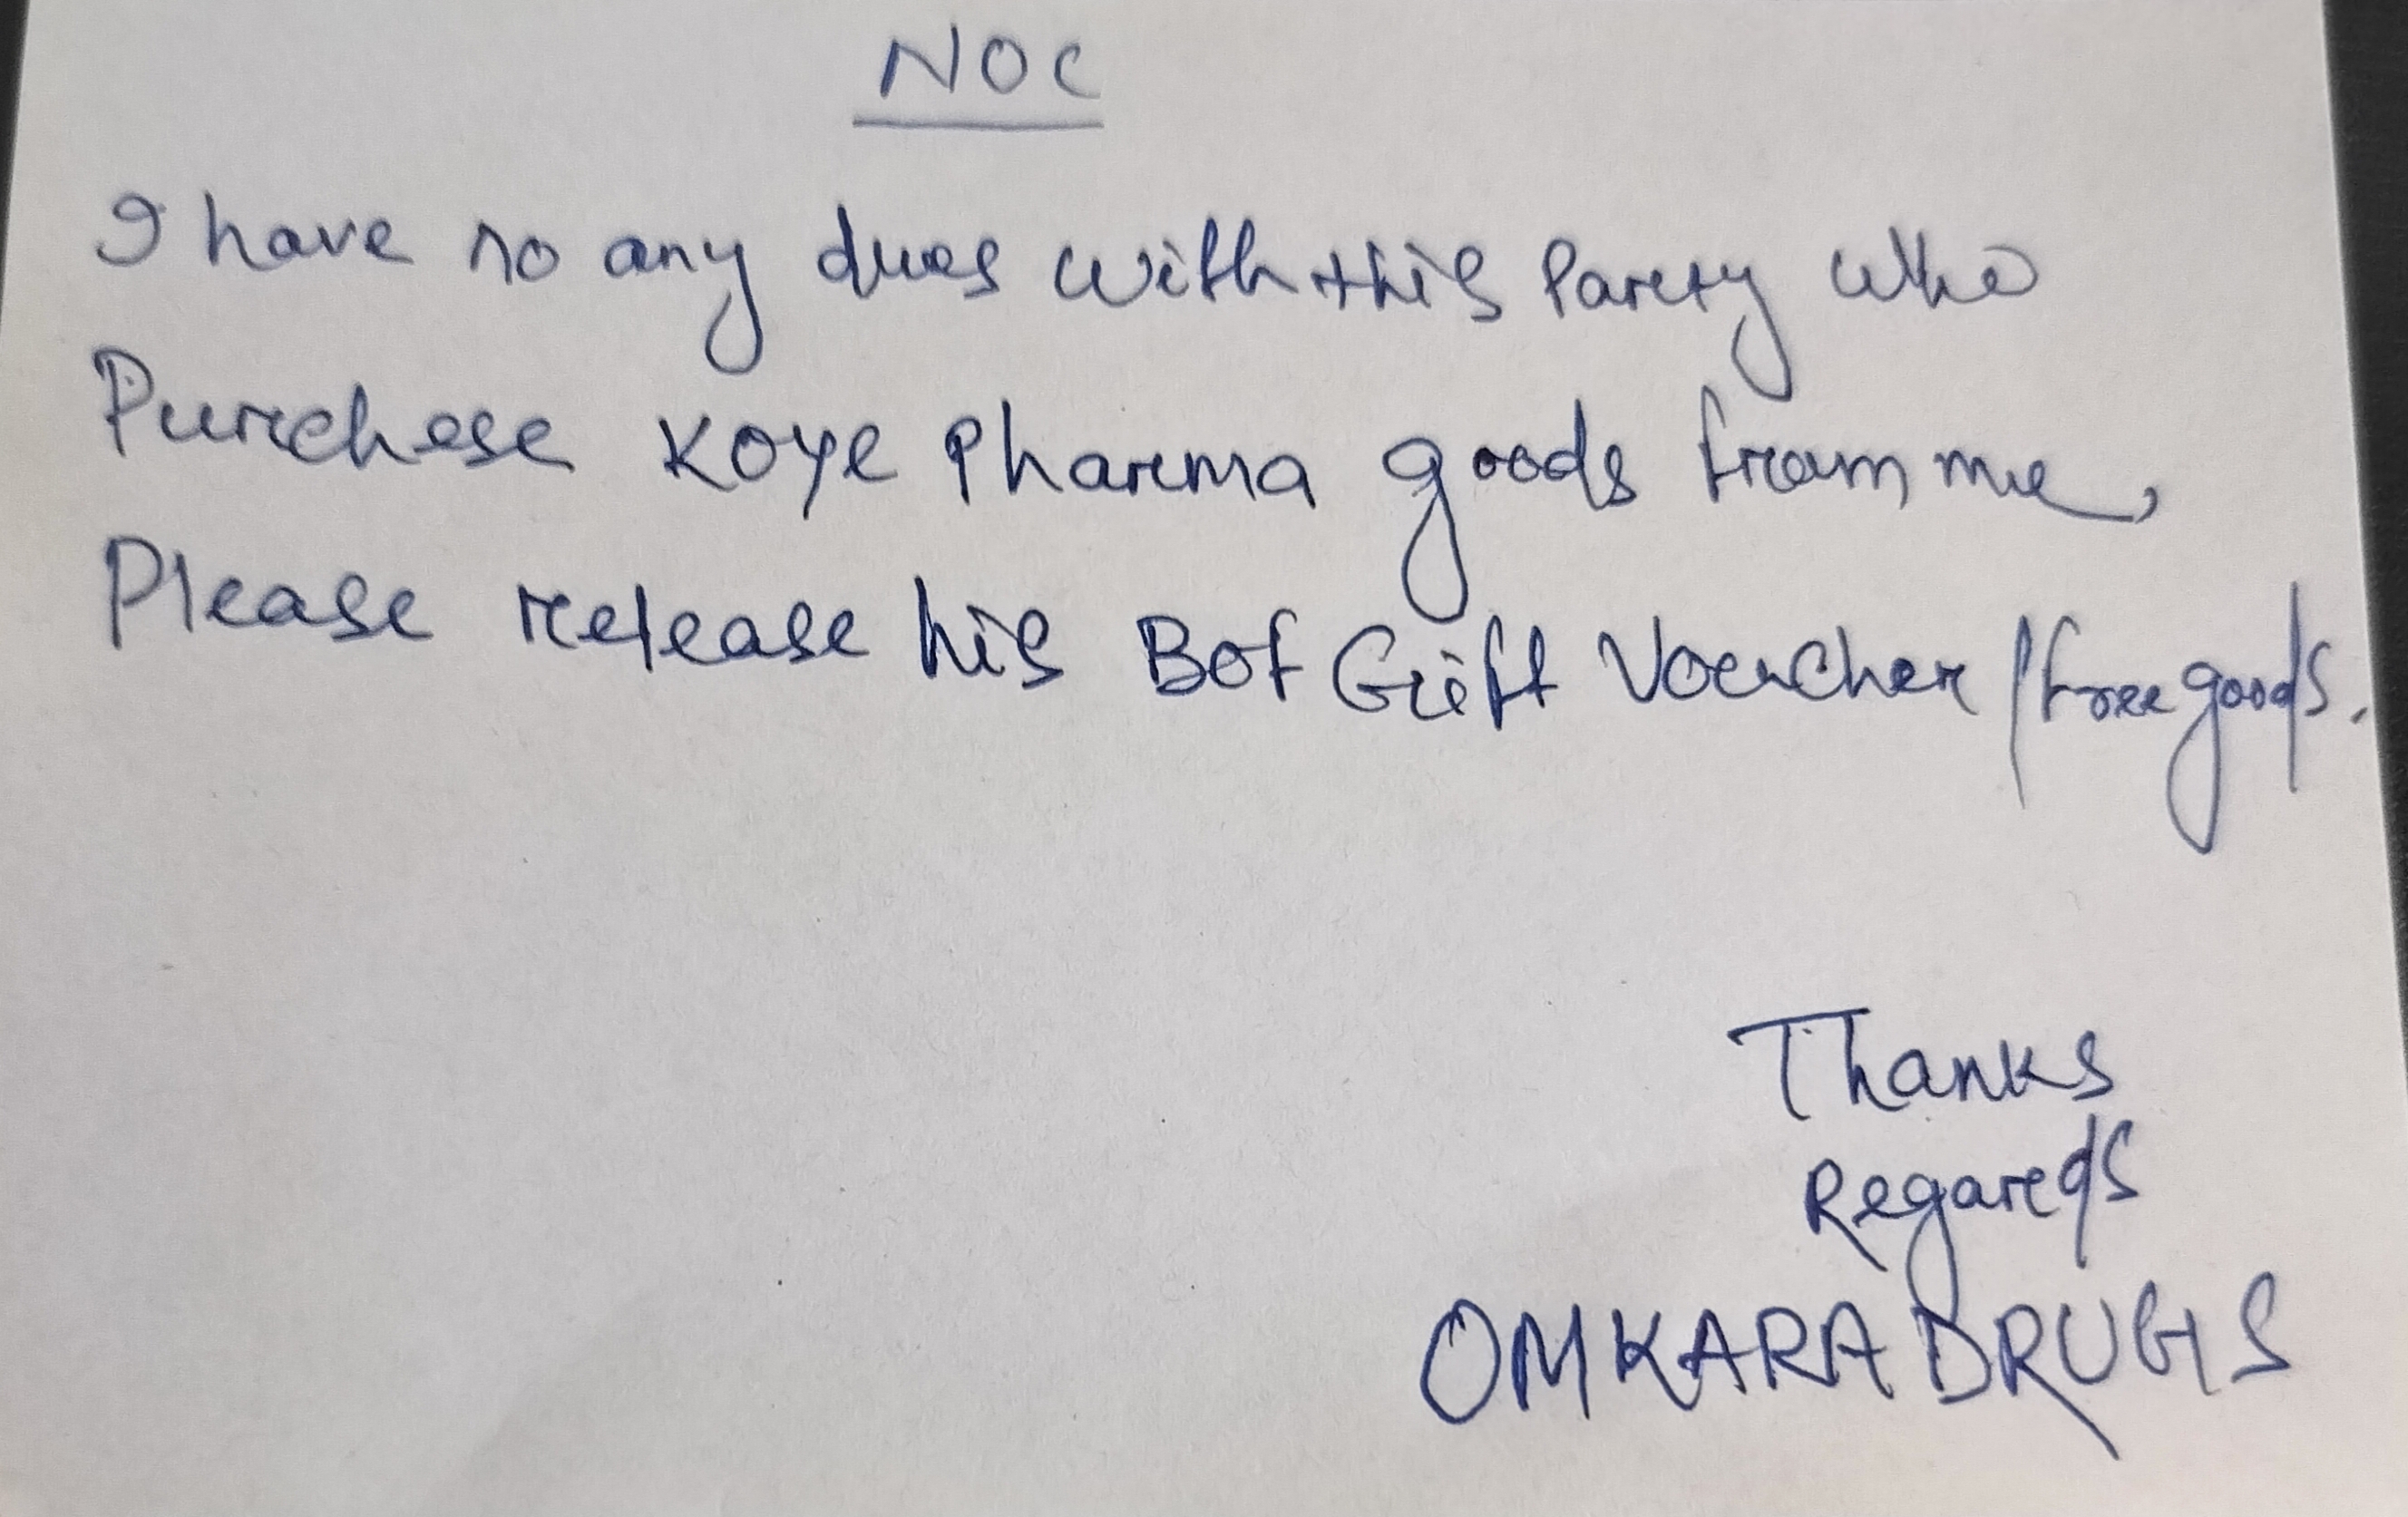 NOC
I have no any dues with this Party who
Purchese KOYE Pharma goods from me,
Please release his Bof Gift Voucher/free goods.
Thanks
Regards
OMKARA DRUGS